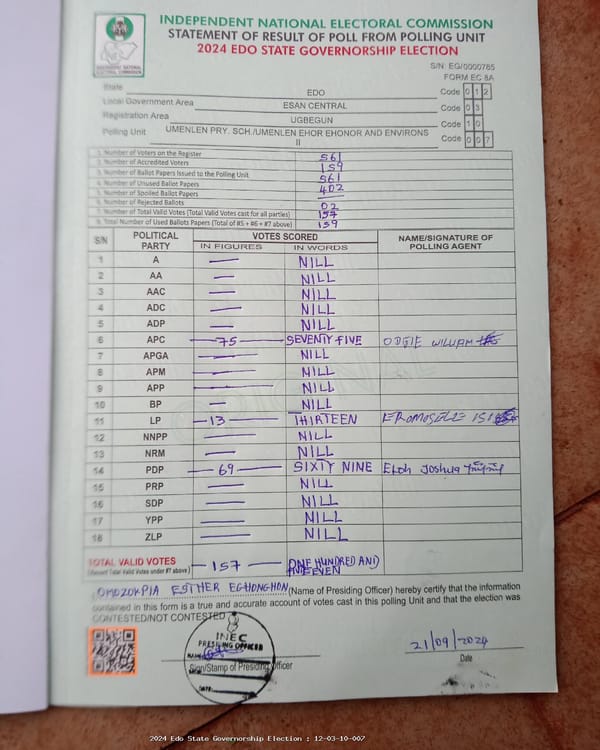 INDEPENDENT NATIONAL ELECTORAL COMMISSION
STATEMENT OF RESULT OF POLL FROM POLLING UNIT
2024 EDO STATE GOVERNORSHIP ELECTION
S/N: EG/0000785
FORM EC 8A
State EDO Code 0 1 2
Local Government Area ESAN CENTRAL Code 0 3
Registration Area UGBEGUN Code 1 0
Polling Unit UMENLEN PRY. SCH./UMENLEN EHOR EHONOR AND ENVIRONS II Code 0 0 7
1. Number of Voters on the Register 561
2. Number of Accredited Voters 159
3. Number of Ballot Papers Issued to the Polling Unit 561
4. Number of Unused Ballot Papers 402
5. Number of Spoiled Ballot Papers —
6. Number of Rejected Ballots 02
7. Number of Total Valid Votes (Total Valid Votes cast for all parties) 157
8. Total Number of Used Ballots Papers (Total of #5 + #6 + #7 above) 159
S/N POLITICAL PARTY VOTES SCORED NAME/SIGNATURE OF POLLING AGENT
IN FIGURES IN WORDS
1 A — NILL
2 AA — NILL
3 AAC — NILL
4 ADC — NILL
5 ADP — NILL
6 APC —75— SEVENTY FIVE ODGIE WILLIAM
7 APGA — NILL
8 APM — NILL
9 APP — NILL
10 BP — NILL
11 LP —13— THIRTEEN EROMOSELE ISI
12 NNPP — NILL
13 NRM — NILL
14 PDP —69— SIXTY NINE Ekoh Joshua
15 PRP — NILL
16 SDP — NILL
17 YPP — NILL
18 ZLP — NILL
TOTAL VALID VOTES —157— ONE HUNDRED AND
OMOZOKPIA ESTHER EGHONGHON (Name of Presiding Officer) hereby certify that the information
contained in this form is a true and accurate account of votes cast in this polling Unit and that the election was
CONTESTED/NOT CONTESTED
INEC
PRESIDING OFFICER
Sign/Stamp of Presiding Officer
DATE:
21/09/2024
Date
2024 Edo State Governorship Election : 12-03-10-007